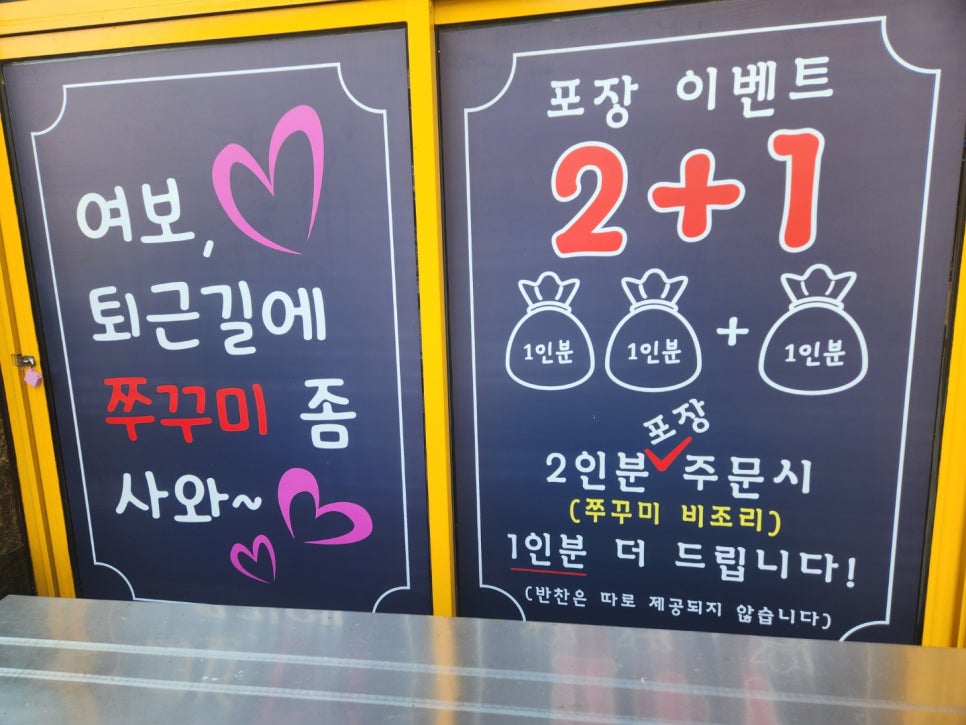 여보,
퇴근길에
쭈꾸미 좀
사와~
포장 이벤트
2+1
1인분 1인분 + 1인분
포장
2인분✓주문시
(쭈꾸미 비조리)
1인분 더 드립니다!
(반찬은 따로 제공되지 않습니다)